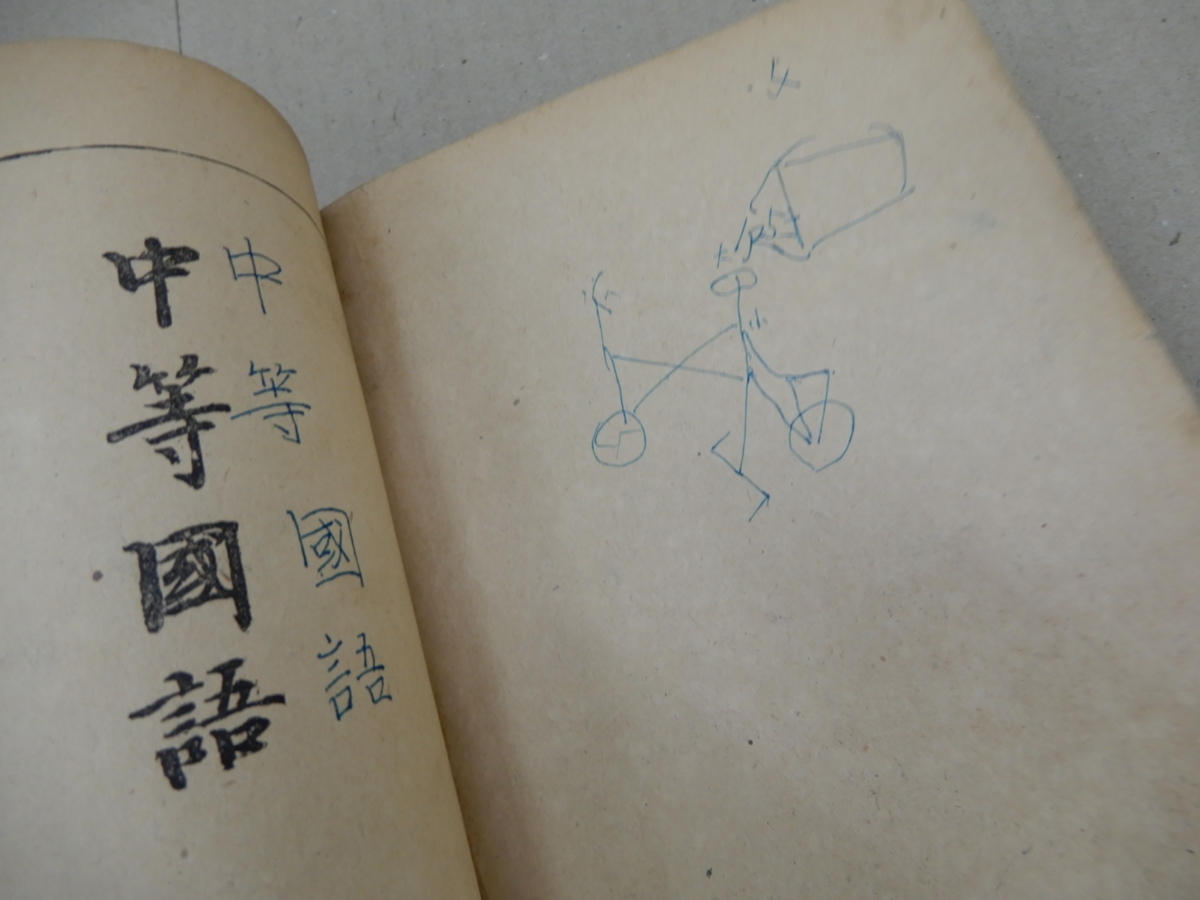 中等國語
中等國語